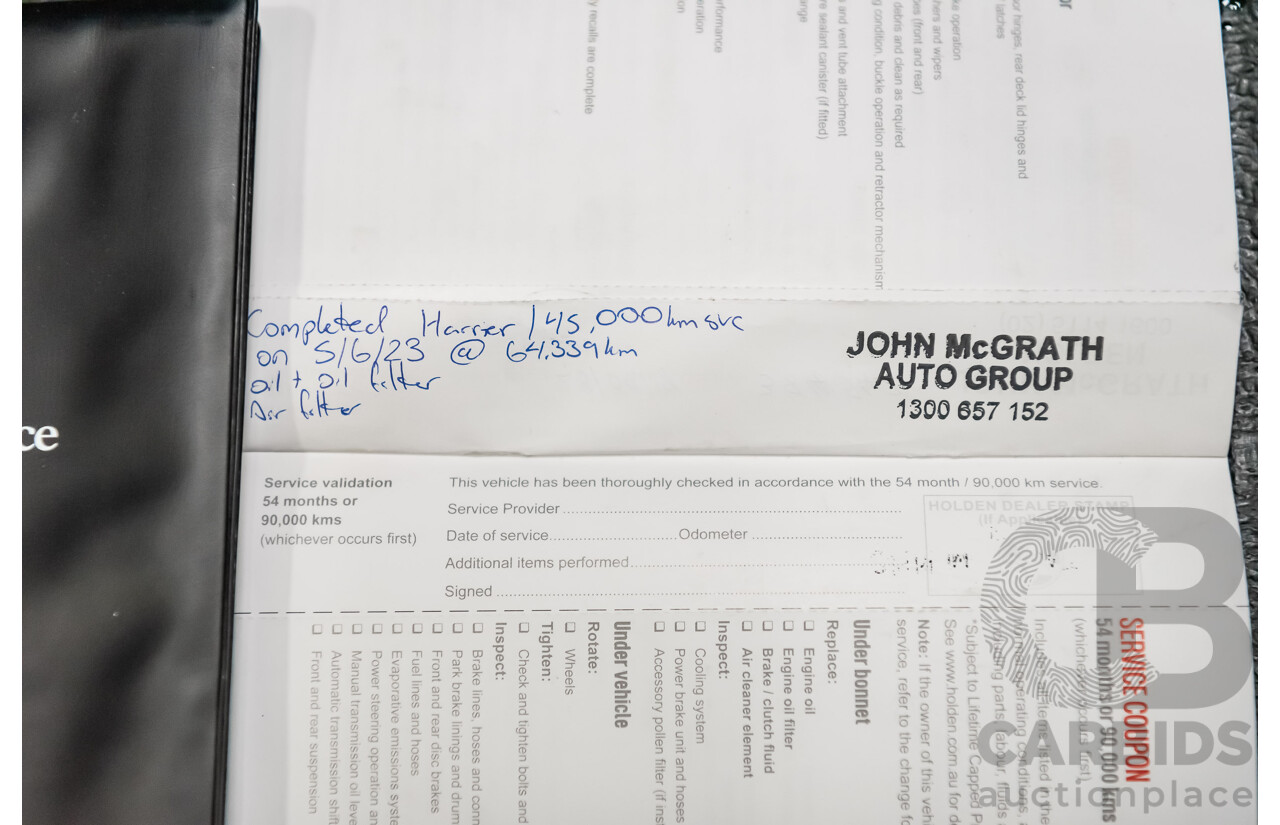 or
or hinges, rear deck lid hinges and
latches
ke operation
hers and wipers
es (front and rear)
debris and clean as required
g condition, buckle operation and retractor mechanism
s and vent tube attachment
re sealant canister (if fitted)
ange
erformance
eration
on
y recalls are complete
Completed Harrier / 45,000km svc
on 5/6/23 @ 64,339km
oil + oil filter
Air filter
JOHN McGRATH
AUTO GROUP
1300 657 152
ce
Service validation
54 months or
90,000 kms
(whichever occurs first)
This vehicle has been thoroughly checked in accordance with the 54 month / 90,000 km service.
Service Provider
Date of service Odometer
Additional items performed
Signed
HOLDEN DEALER STAMP
SERVICE COUPON
54 months or 90,000 kms
(whichever occurs first)
Include items listed in the
Normal operating conditions,
parts, labour, fluids
*Subject to Lifetime Capped P
See www.holden.com.au for d
Note: If the owner of this vehi
service, refer to the change fo
Under bonnet
Replace:
❑ Engine oil
❑ Engine oil filter
❑ Brake / clutch fluid
❑ Air cleaner element
Inspect:
❑ Cooling system
❑ Power brake unit and hoses
❑ Accessory pollen filter (if inst
Under vehicle
Rotate:
❑ Wheels
Tighten:
❑ Check and tighten bolts and
Inspect:
❑ Brake lines, hoses and conn
❑ Park brake linings and drum
❑ Front and rear disc brakes
❑ Fuel lines and hoses
❑ Evaporative emissions syste
❑ Power steering operation an
❑ Manual transmission oil leve
❑ Automatic transmission shift
❑ Front and rear suspension
CB
CARBIDS
auctionplace